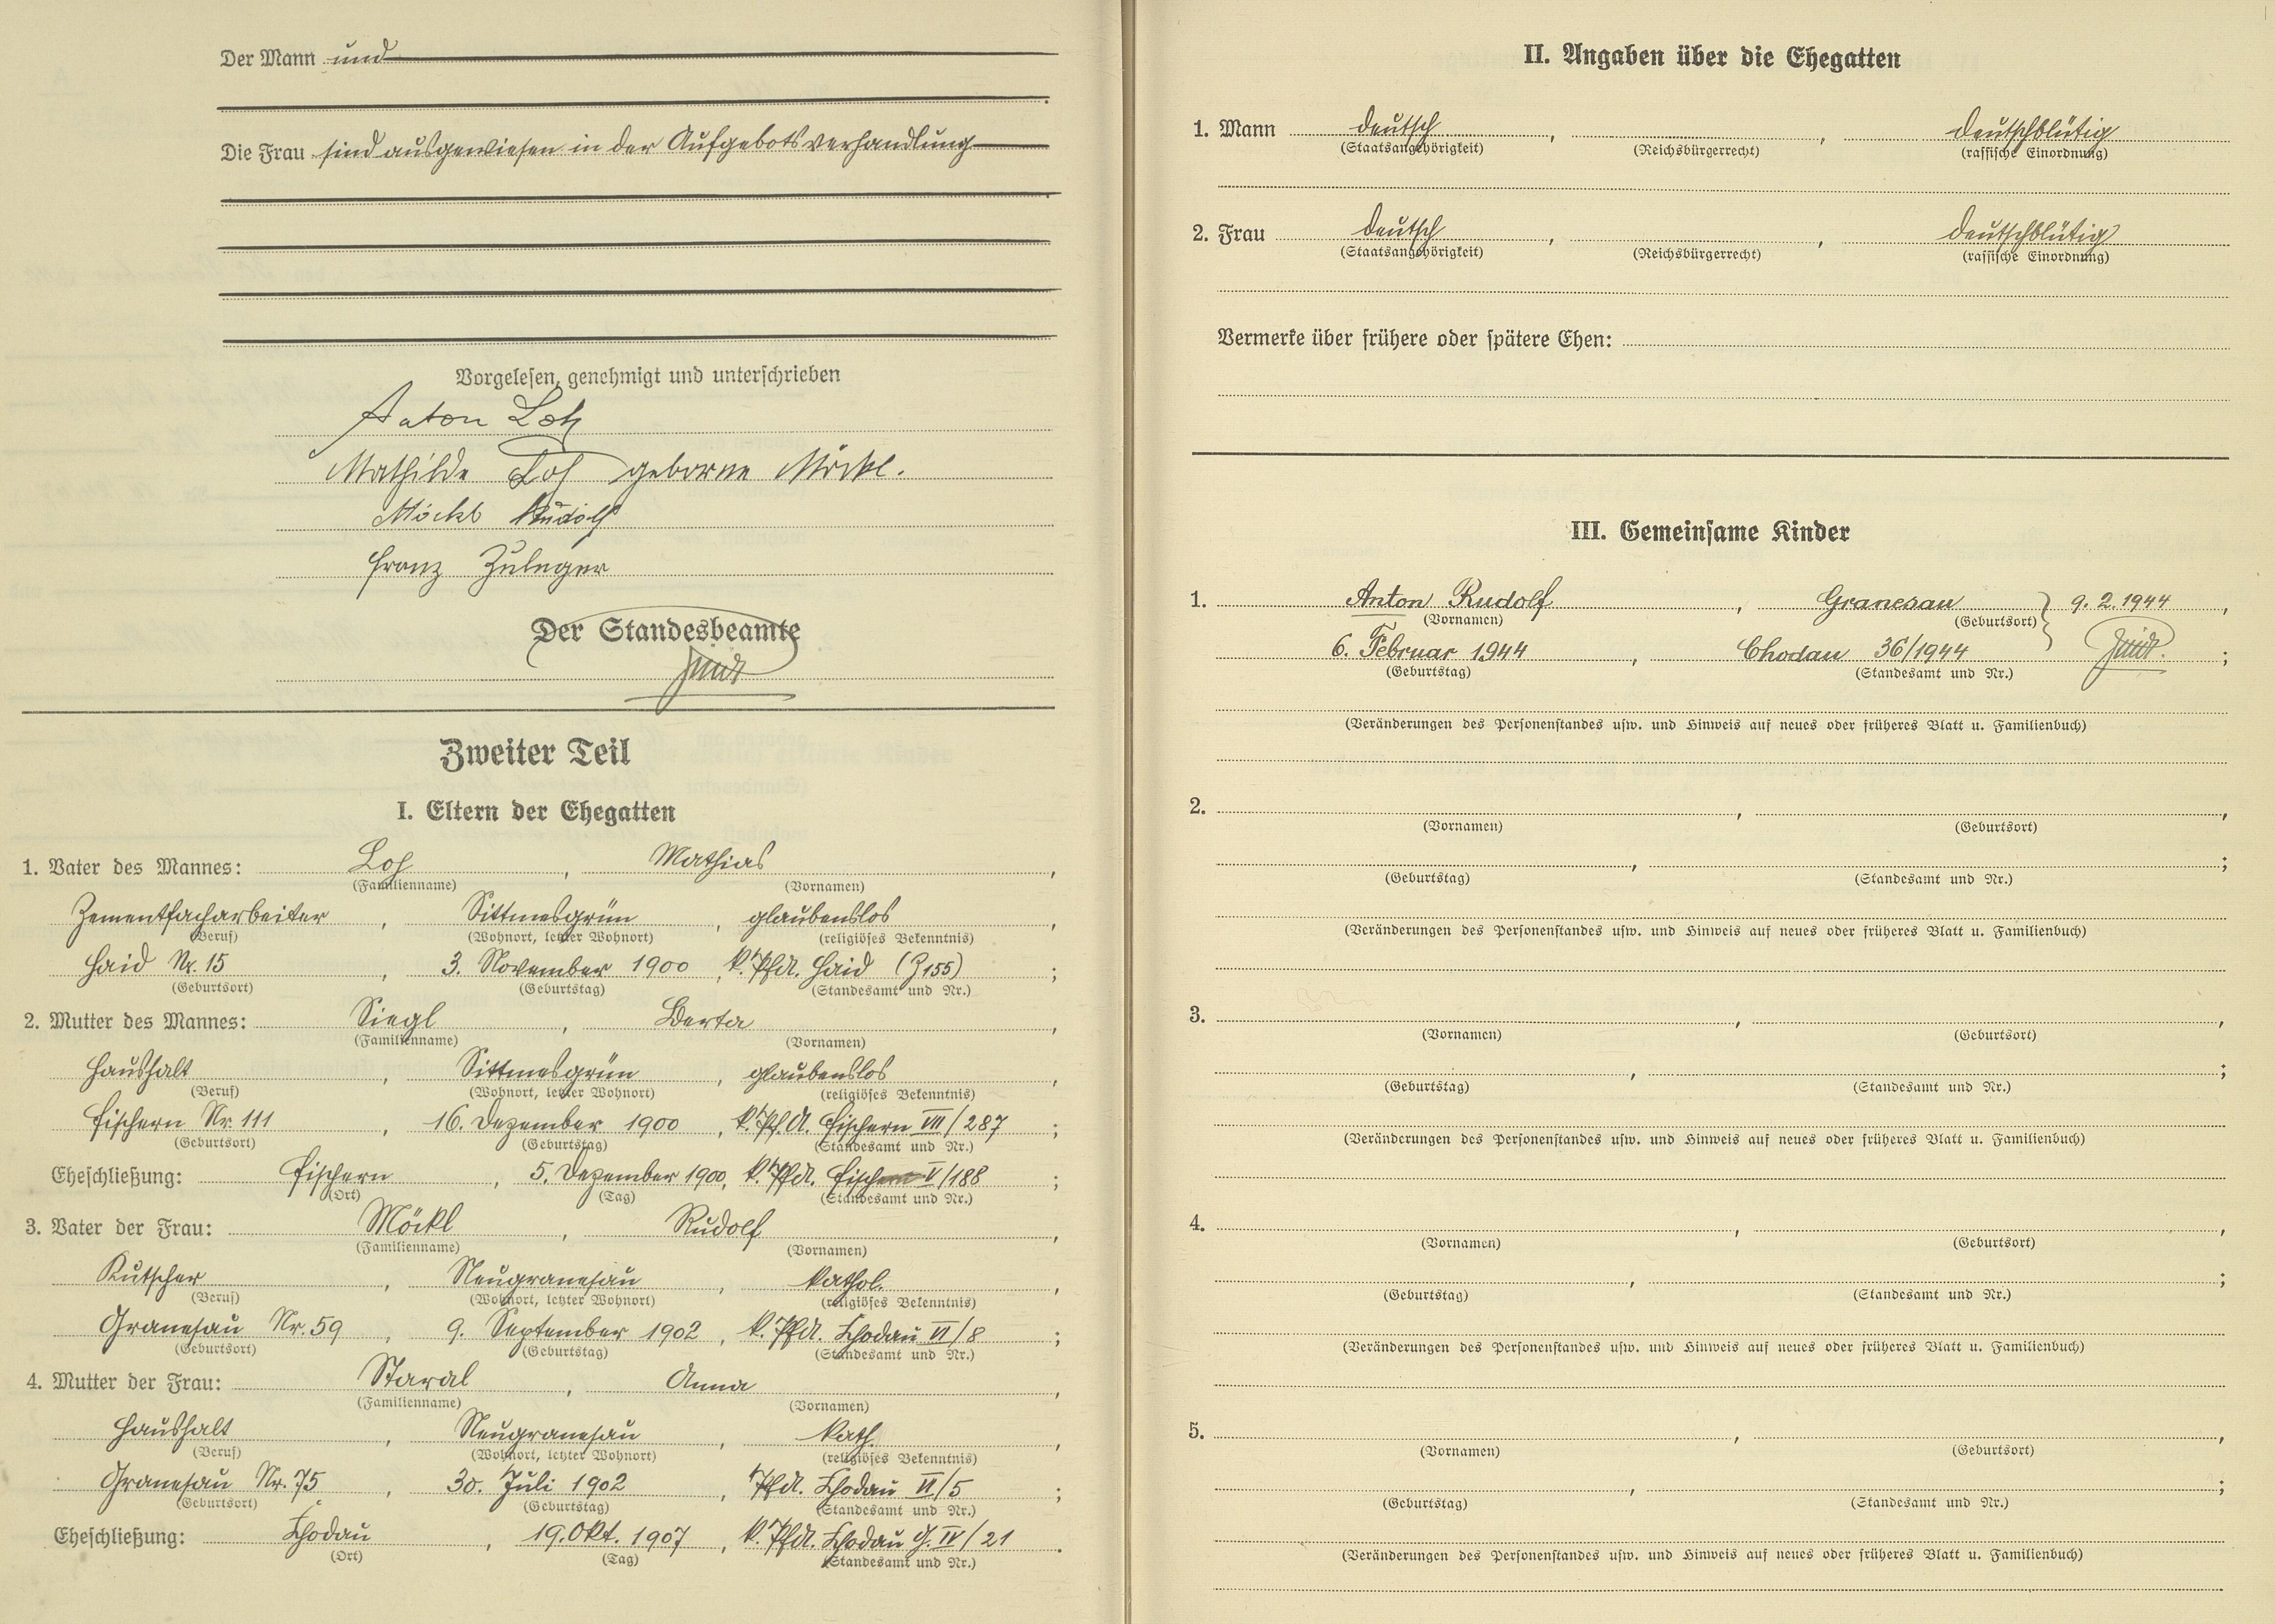 Der Mann und
Die Frau sind ausgewiesen in der Aufgebotsverhandlung
Vorgelesen, genehmigt und unterschrieben
Anton Loh
Mathilde Loh geborne Möckl.
Möckl Rudolf
Franz Zuleger
Der Standesbeamte
Zweiter Teil
I. Eltern der Ehegatten
1. Vater des Mannes: Loh, Mathias,
(Familienname) (Vornamen)
Zementfacharbeiter, Sittmesgrün, glaubenslos,
(Beruf) (Wohnort, letzter Wohnort) (religiöses Bekenntnis)
Haid Nr. 15, 3. November 1900, k. PfA. Haid (Z155);
(Geburtsort) (Geburtstag) (Standesamt und Nr.)
2. Mutter des Mannes: Siegl, Berta,
(Familienname) (Vornamen)
Haushalt, Sittmesgrün, glaubenslos,
(Beruf) (Wohnort, letzter Wohnort) (religiöses Bekenntnis)
Fischern Nr. 111, 16. Dezember 1900, k. Pf.A. Fischern VIII/287;
(Geburtsort) (Geburtstag) (Standesamt und Nr.)
Eheschließung: Fischern, 5. Dezember 1900, k. PfA. Fischern V/188;
(Ort) (Tag) (Standesamt und Nr.)
3. Vater der Frau: Möckl, Rudolf,
(Familienname) (Vornamen)
Kutscher, Neugranesau, kathol.,
(Beruf) (Wohnort, letzter Wohnort) (religiöses Bekenntnis)
Granesau Nr. 59, 9. September 1902, k. PfA. Chodau VI/8;
(Geburtsort) (Geburtstag) (Standesamt und Nr.)
4. Mutter der Frau: Staral, Anna,
(Familienname) (Vornamen)
Haushalt, Neugranesau, kath.,
(Beruf) (Wohnort, letzter Wohnort) (religiöses Bekenntnis)
Granesau Nr. 75, 30. Juli 1902, PfA. Chodau VI/5;
(Geburtsort) (Geburtstag) (Standesamt und Nr.)
Eheschließung: Chodau, 19. Okt. 1907, k. PfA. Chodau G. IV/21.
(Ort) (Tag) (Standesamt und Nr.)
II. Angaben über die Ehegatten
1. Mann deutsch, , deutschblütig
(Staatsangehörigkeit) (Reichsbürgerrecht) (rassische Einordnung)
2. Frau deutsch, , deutschblütig
(Staatsangehörigkeit) (Reichsbürgerrecht) (rassische Einordnung)
Vermerke über frühere oder spätere Ehen:
III. Gemeinsame Kinder
1. Anton Rudolf, Granesau } 9. 2. 1944,
(Vornamen) (Geburtsort)
6. Februar 1944, Chodau 36/1944 ;
(Geburtstag) (Standesamt und Nr.)
(Veränderungen des Personenstandes usw. und Hinweis auf neues oder früheres Blatt u. Familienbuch)
2. , ,
(Vornamen) (Geburtsort)
, ;
(Geburtstag) (Standesamt und Nr.)
(Veränderungen des Personenstandes usw. und Hinweis auf neues oder früheres Blatt u. Familienbuch)
3. , ,
(Vornamen) (Geburtsort)
, ;
(Geburtstag) (Standesamt und Nr.)
(Veränderungen des Personenstandes usw. und Hinweis auf neues oder früheres Blatt u. Familienbuch)
4. , ,
(Vornamen) (Geburtsort)
, ;
(Geburtstag) (Standesamt und Nr.)
(Veränderungen des Personenstandes usw. und Hinweis auf neues oder früheres Blatt u. Familienbuch)
5. , ,
(Vornamen) (Geburtsort)
, ;
(Geburtstag) (Standesamt und Nr.)
(Veränderungen des Personenstandes usw. und Hinweis auf neues oder früheres Blatt u. Familienbuch)